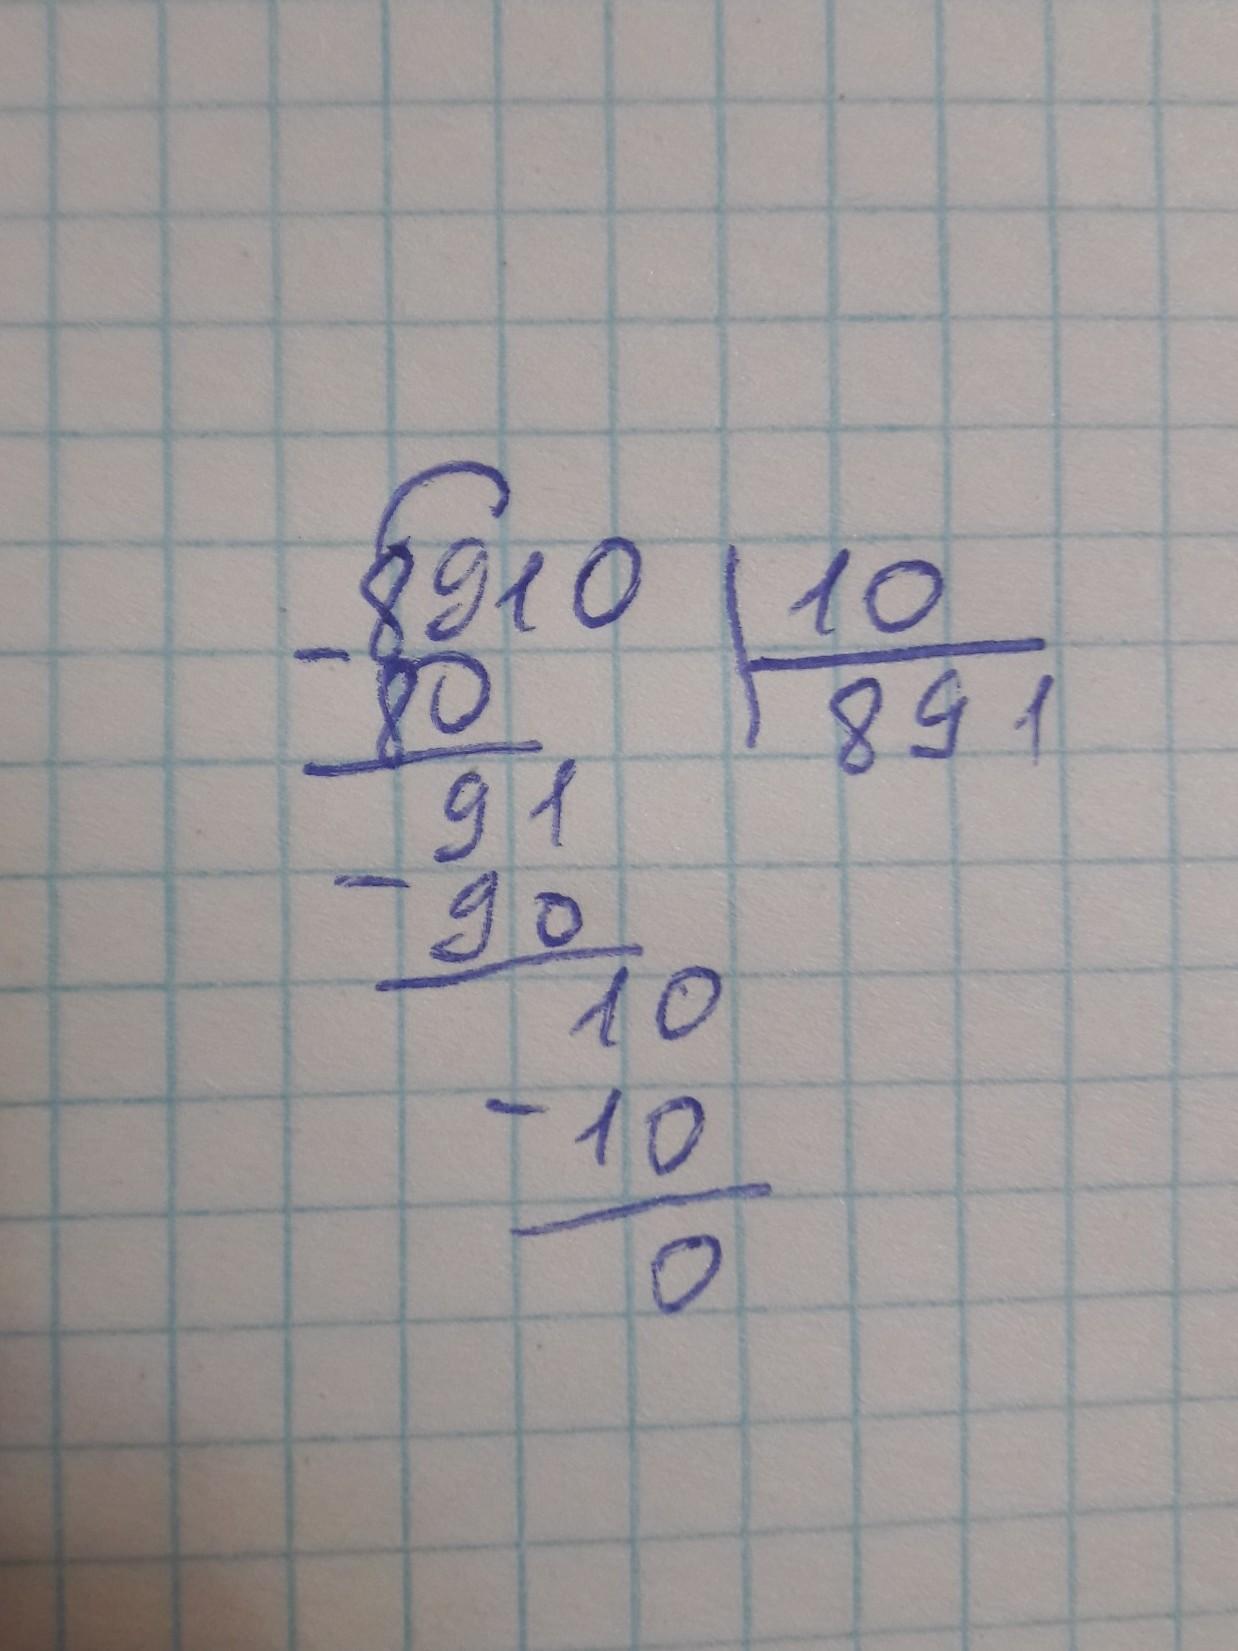 8910 10
- 80 891
91
- 90
10
- 10
0